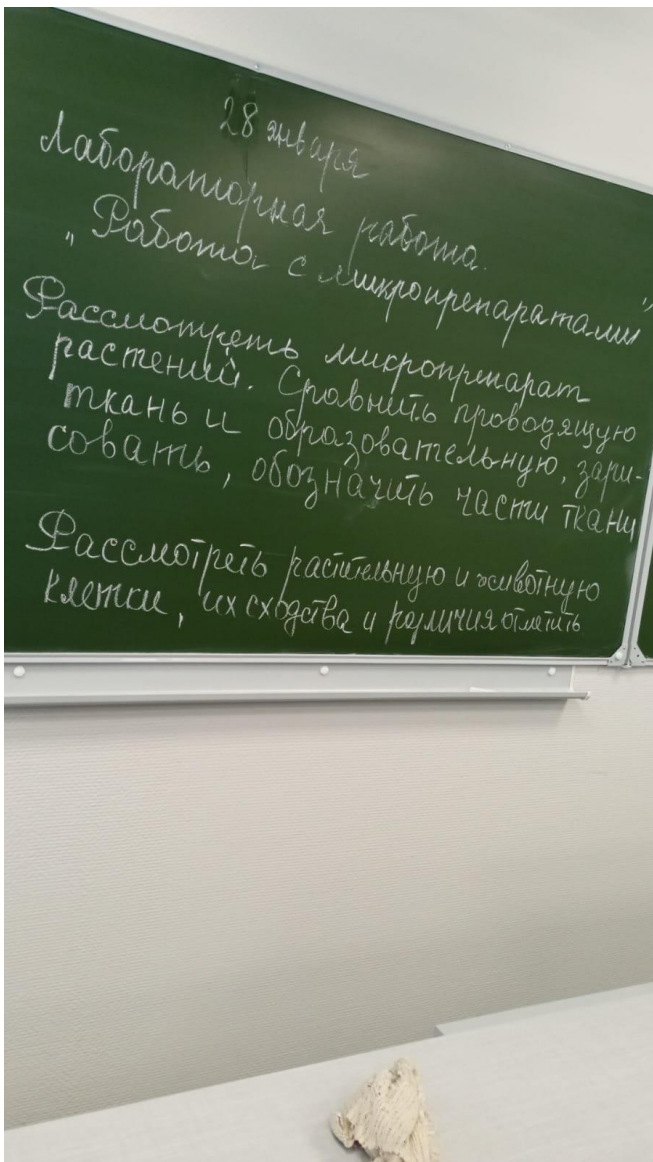 28 января
Лабораторная работа.
„Работа с микропрепаратами"
Рассмотреть микропрепарат
растений. Сравнить проводящую
ткань и образовательную, зари-
совать, обозначить части ткани
Рассмотреть растительную и животную
клетки, их сходства и различия отметить